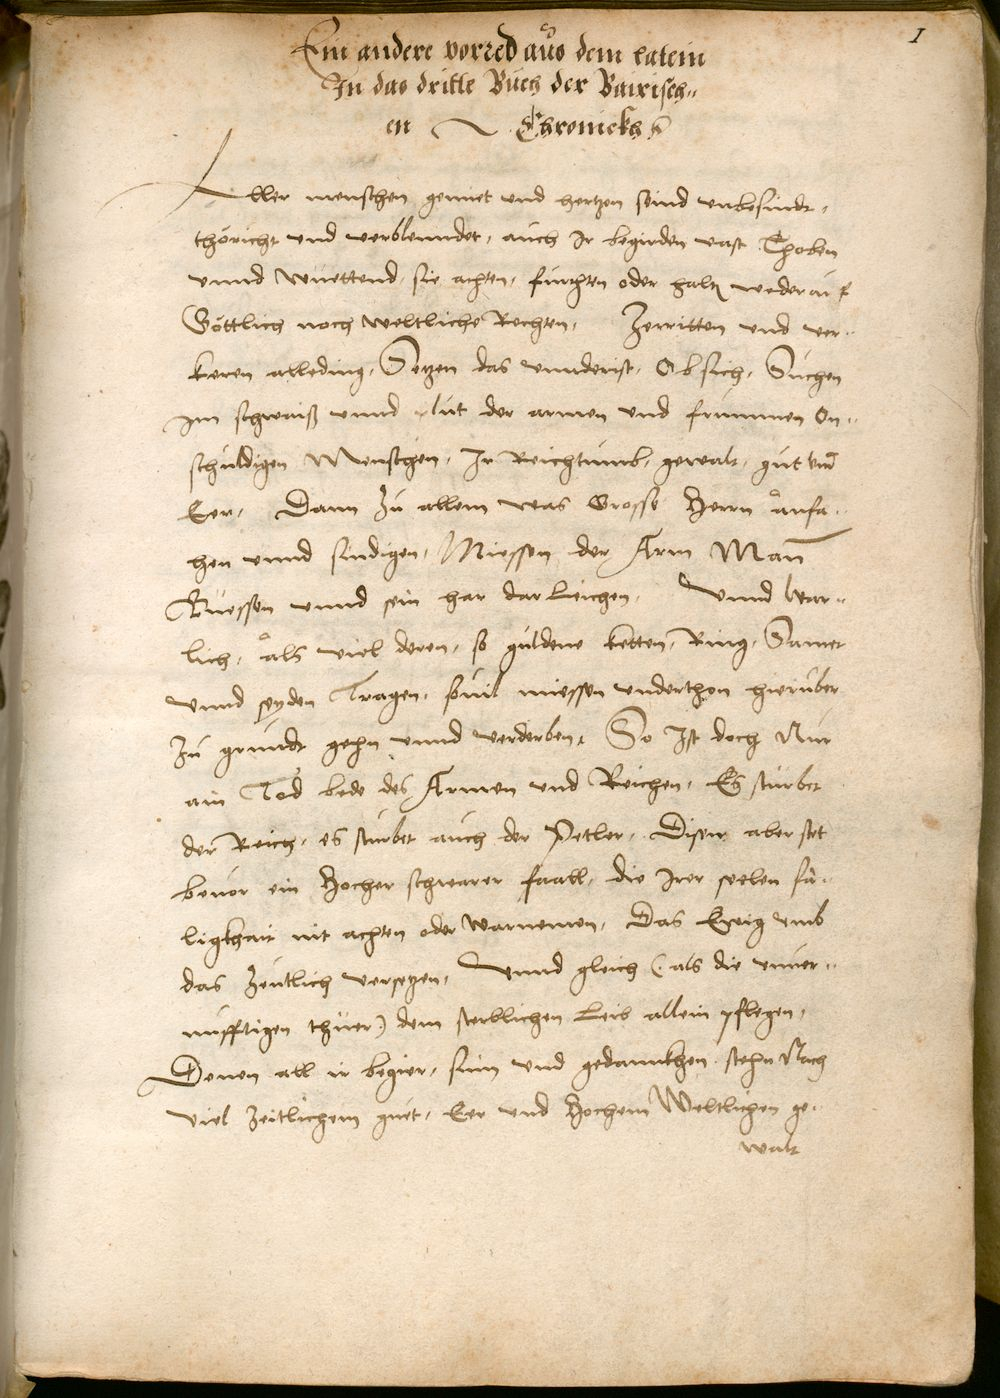 1
Ein andere vorred aus dem latein
In das dritte Buech der Bairisch„
en Chronickh
Aller menschen gemiet vnd hertzen seind vnbesindt,
thöricht vnd verblenndet, auch Ir begirden vast Thoben
vnnd wüettend, sie achten, fürchten oder haltn weder auf
Göttlich noch weltliche Rechten, Zerritten vnd ver„
keren alleding, Setzen das vnnderist, Obsich, Suchen
im schwaiß vnnd plut der armen vnd frummen On„
schuldigen Menschen, Ir Reichtumb, gewalt, gut vnd
Eer, Dann Zu allem was Grosse Herrn anfa„
hen vnnd sindigen, Miessen der Arm Man
Büessen vnnd sein har dar leichen, Vnnd war„
lich, als viel deren, so guldene ketten, Ring, Samet
vnnd seyden Tragen, souil miessen vnderthon hierüber
Zu grundt gehn vnnd verderben, So Ist doch Nur
ain Tod bede des Armen vnd Reichen, Es stürbet
der Reich, es stürbet auch der Petler, Disen aber stet
beuor ein Hocher schwarer faall, die Irer seelen sä„
ligkhait nit achten oder warnemen, Das Ewig vmb
das Zeutlich versetzen, Vnnd gleich (als die vnuer„
nufftigen thüer) dem sterblichen Leib allein pflegen,
Denen all ir begier, sinn vnd gedannkhen stehn Nach
viel Zeitlichem guet, Eer vnd Hochem Weltlichen ge„
walt